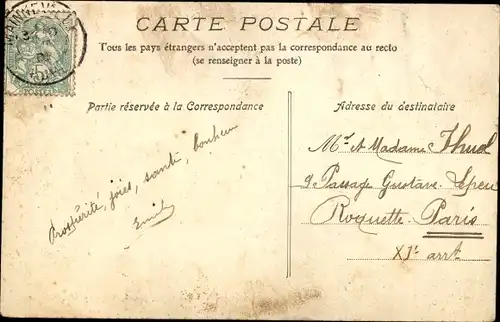 CARTE POSTALE
Tous les pays étrangers n'acceptent pas la correspondance au recto
(se renseigner à la poste)
Partie réservée à la Correspondance
Adresse du destinataire
Prospérité, joies, santé, bonheur
Emile
Mr et Madame
9 Passage Gustave Lepeu
Roquette. Paris
XIe arrt